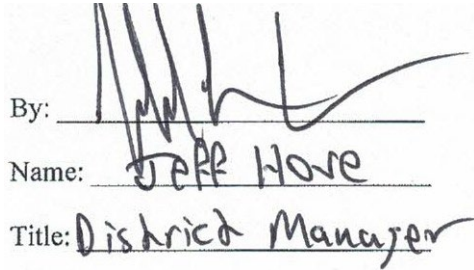 By:
Name: Jeff Hove
Title: District Manager